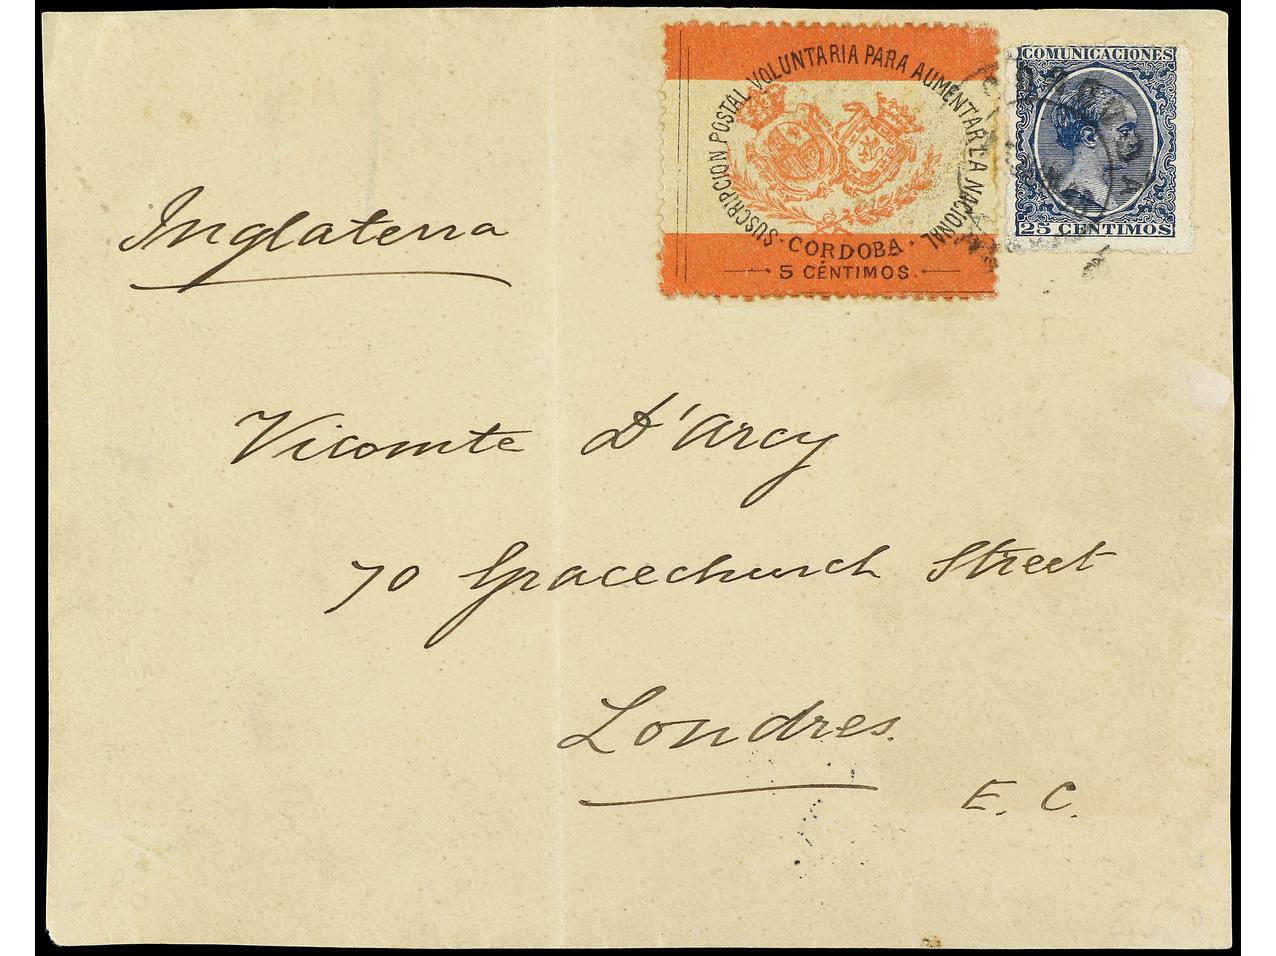 SUSCRIPCION POSTAL VOLUNTARIA PARA AUMENTAR LA NACIONAL
· CORDOBA ·
5 CÉNTIMOS.
COMUNICACIONES
25 CENTIMOS
Inglaterra
Vicomte D'Arcy
70 Gracechurch Street
Londres.
E. C.